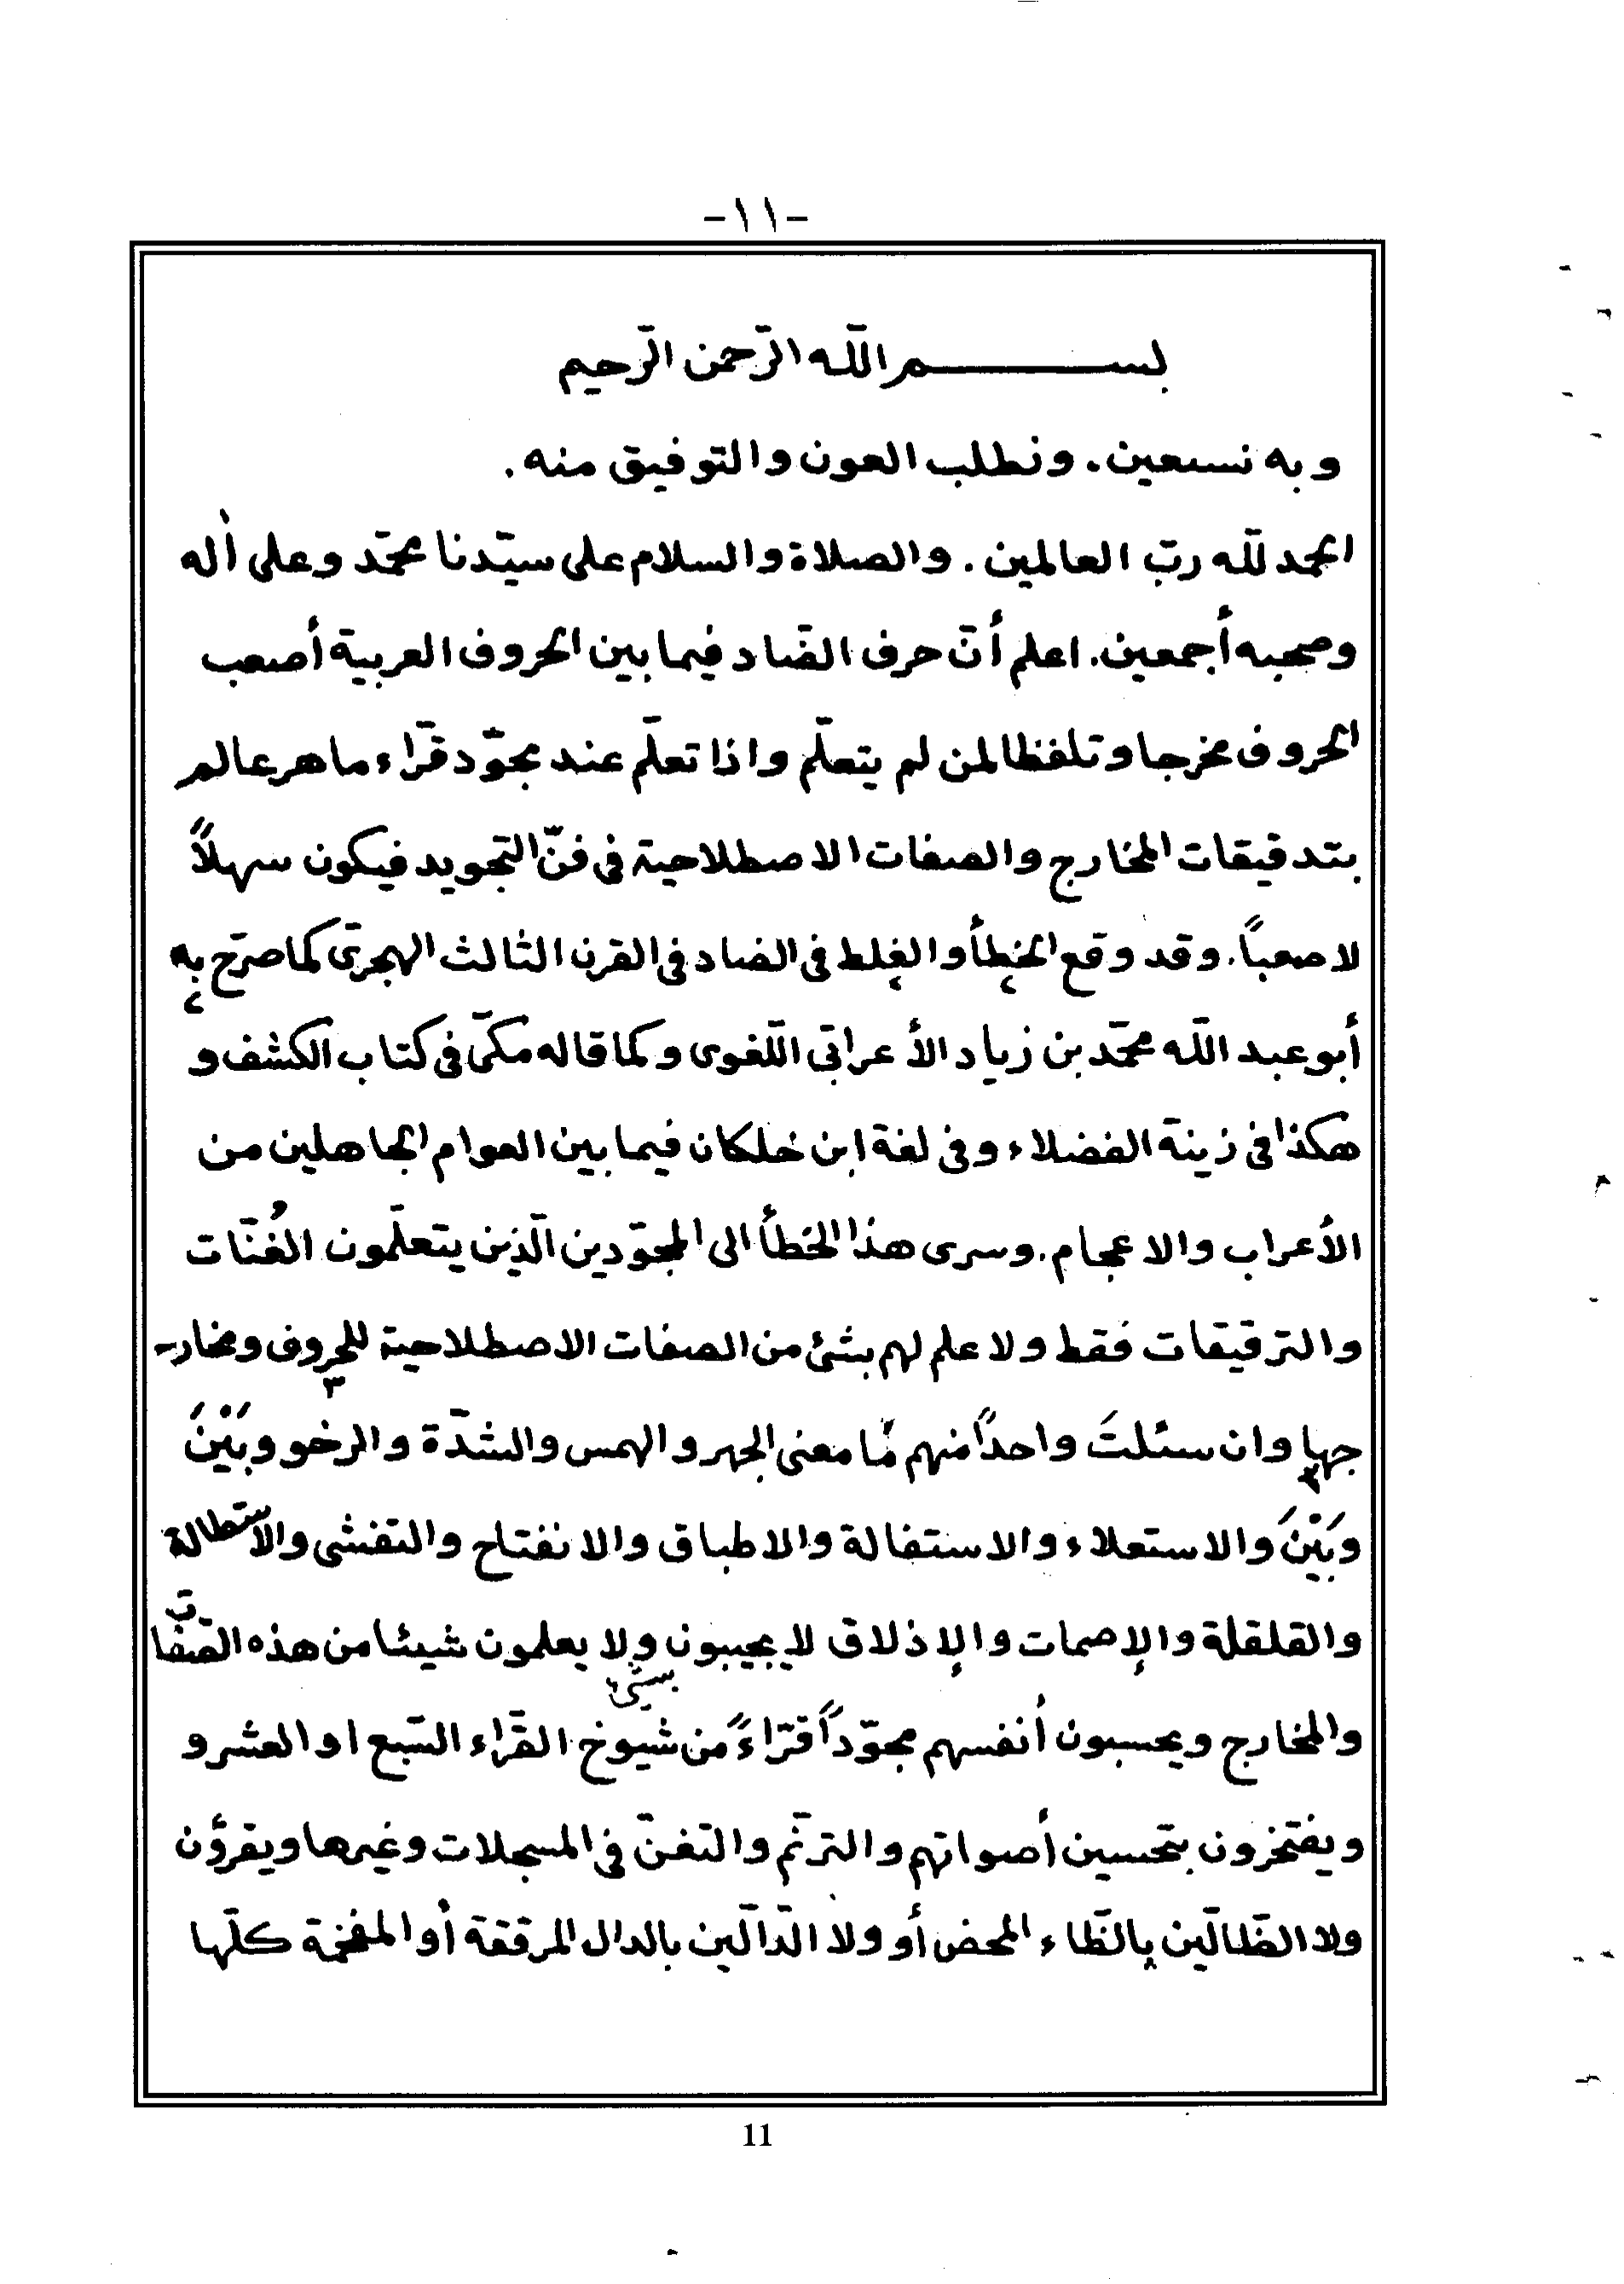 -١١-
بسم الله الرّحمن الرّحيم
وبه نستعين. ونطلب العون والتوفيق منه.
الحمد لله ربّ العالمين. والصلاة والسلام على سيّدنا محمّد وعلى أله
وصحبه أجمعين. اعلم أنّ حرف الضّاد فيما بين الحروف العربية أصعب
الحروف مخرجا وتلفظا لمن لم يتعلّم واذا تعلّم عند مجوّد قرّاء ماهر عالم
بتدقيقات المخارج والصفات الاصطلاحية فى فنّ التجويد فيكون سهلاً
لا صعباً. وقد وقع الخطأ والغلط فى الضاد فى القرن الثالث الهجرىّ كما صرّح به
أبو عبد اللّه محمّد بن زياد الأعرابّى اللّغوى وكما قاله مكّى فى كتاب الكشف و
هكذا فى زينة الفضلاء وفى لغة ابن خلكان فيما بين العوام الجاهلين من
الأعراب والاعجام. وسرى هذا الخطأ الى المجوّدين الّذين يتعلّمون الغُنّات
والترقيقات فقط ولا علم لهم بشئ من الصفات الاصطلاحية للحروف ومخار
جها وان سئلتَ واحداً منهم مَا معنى الجهر والهمس والشدّة والرخو وبَيْنَ
وبَيْنَ والاستعلاء والاستفالة والاطباق والانفتاح والتفشى والاستطالة
والقلقلة والإصمات والإذلاق لا يجيبون ولا يعلمون شيئا من هذه الصّفات
والمخارج ويحسبون أنفسهم مجوّداً قرّاءً من شيوخ القرّاء السّبع او العشر و
ويفتخرون بتحسين أصواتهم والترنّم والتغنّ فى المسجلات وغيرها ويقرؤن
ولا الظّالّين بالظّاء المحض أو ولا الدّالّين بالدال المرققة أو المفخمة كلّها
11